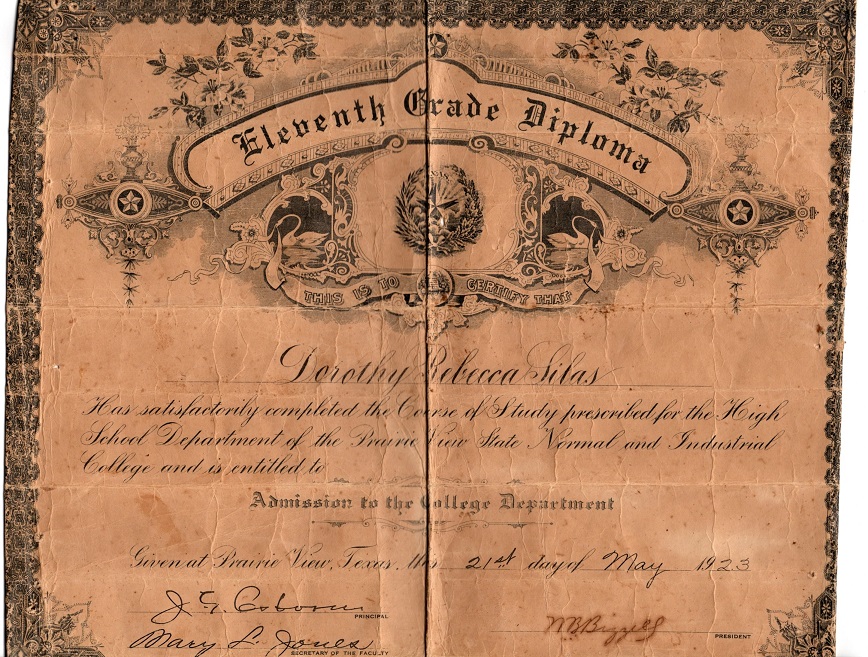 Eleventh Grade Diploma
THIS IS TO CERTIFY THAT
Dorothy Rebecca Silas
Has satisfactorily completed the Course of Study prescribed for the High
School Department of the Prairie View State Normal and Industrial
College and is entitled to
Admission to the College Department
Given at Prairie View, Texas, this 21st day of May 1923
J. G. Osborne
PRINCIPAL
Mary L. Jones
SECRETARY OF THE FACULTY
W B Bizzell
PRESIDENT